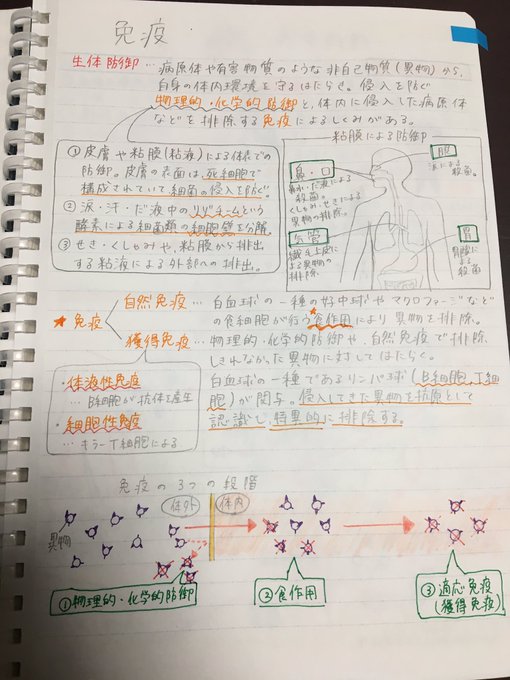 免疫
生体防御…病原体や有害物質のような非自己物質(異物)から、
自身の体内環境を守るはたらき。侵入を防ぐ
物理的・化学的防御と、体内に侵入した病原体
などを排除する免疫によるしくみがある。
①皮膚や粘膜(粘液)による体表での
防御。皮膚の表面は、死細胞で
構成されていて細菌の侵入を防ぐ。
②涙・汗・だ液中のリゾチームという
酵素による細菌類の細胞壁を分解。
③せき・くしゃみや、粘膜から排出
する粘液による外部への排出。
粘膜による防御
鼻・口
鼻水・だ液による
殺菌。
くしゃみ・せきによる
異物の排除。
眼
涙による
殺菌。
気管
繊毛上皮に
よる異物の
排除。
胃
胃酸による
殺菌
★免疫
自然免疫…白血球の一種の好中球やマクロファージなど
の食細胞が行う食作用により異物を排除。
獲得免疫…物理的・化学的防御や、自然免疫で排除
しきれなかった異物に対してはたらく。
白血球の一種であるリンパ球(B細胞、T細
胞)が関与。侵入してきた異物を抗原として
認識し特異的に排除する。
・体液性免疫
…B細胞が抗体を産生
・細胞性免疫
…キラーT細胞による
免疫の3つの段階
体外
体内
異物
①物理的・化学的防御
②食作用
③適応免疫
(獲得免疫)